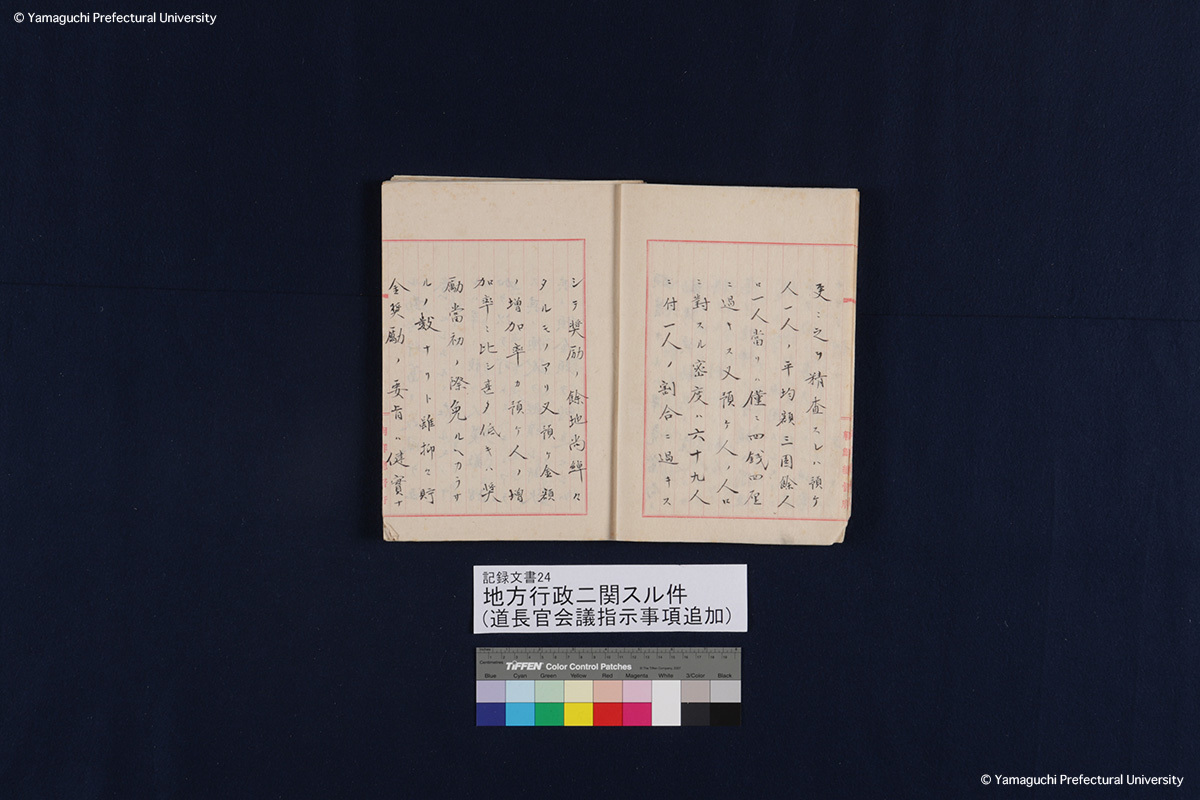 © Yamaguchi Prefectural University
更ニ之ヲ精査スレハ預ケ
人一人ノ平均額三圓餘人
口一人當リハ僅ニ四銭四厘
ニ過キス又預ケ人ノ人口
ニ對スル密度ハ六十九人
ニ付一人ノ割合ニ過キス
シテ奨励ノ餘地尚綽々
タルモノアリ又預ケ金額
ノ増加率カ預ケ人ノ増
加率ニ比シ甚タ低キハ奨
励當初ノ際免ルヘカラサ
ルノ数ナリト雖抑々貯
金奨励ノ要旨ハ健實ナ
記録文書24
地方行政ニ関スル件
(道長官会議指示事項追加)
TIFFEN Color Control Patches
Blue Cyan Green Yellow Red Magenta White 3/Color Black
© Yamaguchi Prefectural University